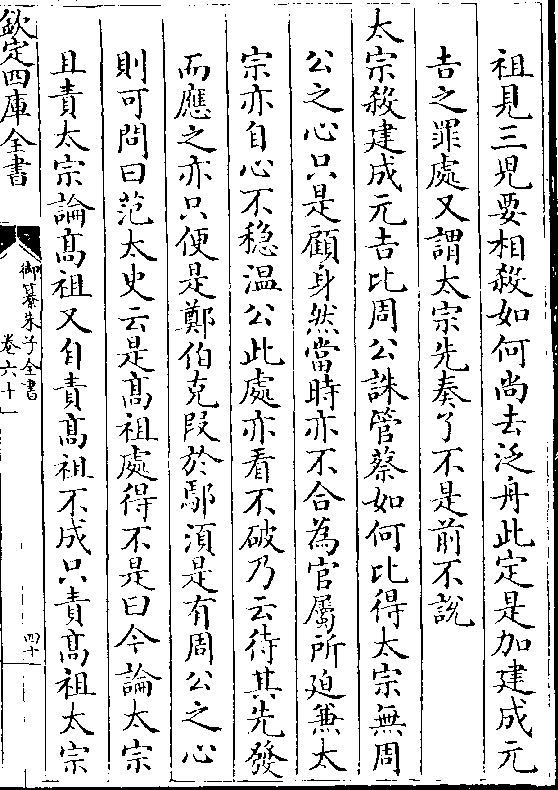 祖見三兒要相殺如何尚去泛舟此定是加建成元
吉之罪處又謂太宗先奏了不是前不說
太宗殺建成元吉比周公誅管蔡如何比得太宗無周
公之心只是顧身然當時亦不合為官屬所迫兼太
宗亦自心不穏溫公此處亦看不破乃云待其先發
而應之亦只便是鄭伯克段於鄢湏是有周公之心
則可問曰范太史云是髙祖處得不是曰今論太宗
且責太宗論髙祖又自責髙祖不成只責髙祖太宗
欽定四庫全書
御纂朱子全書
卷六十一
四十